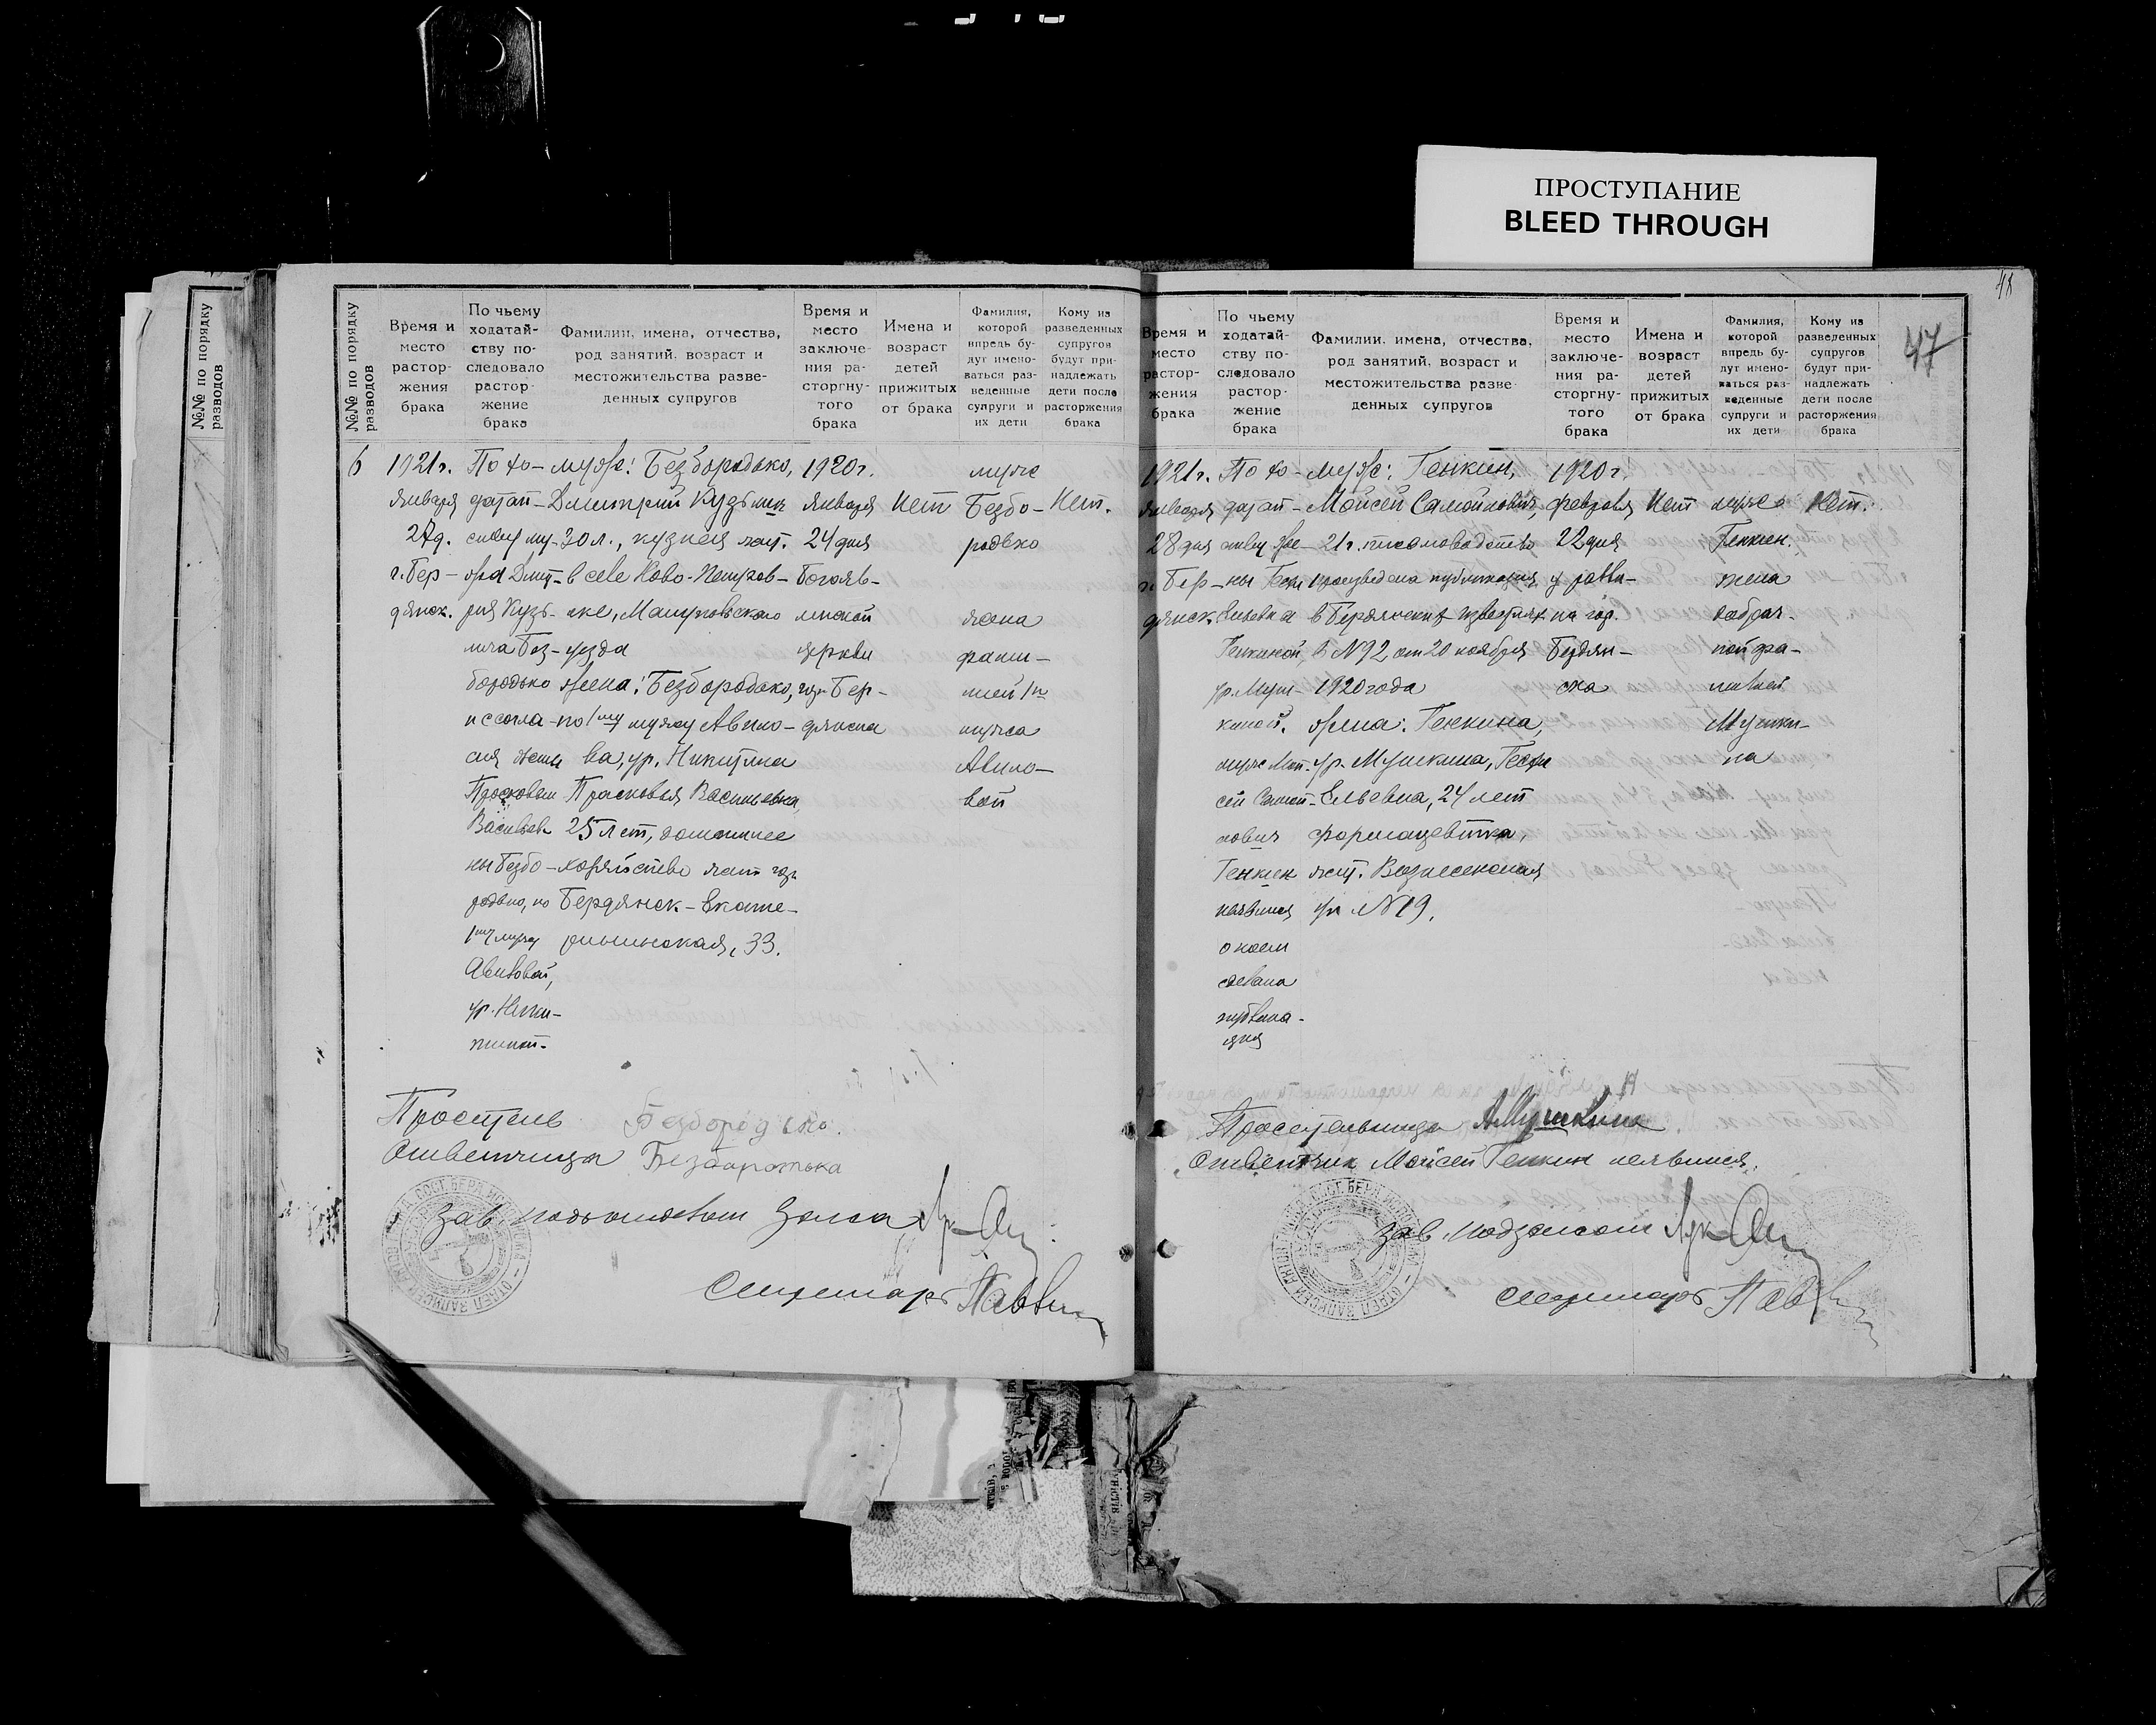 ПРОСТУПАНИЕ
BLEED THROUGH
№№ по порядку
разводов
№№ по порядку
разводов
Время и
место
растор-
жения
брака
По чьему
ходатай-
ству по-
следовало
растор-
жение
брака
Фамилии, имена, отчества,
род занятий, возраст и
местожительства разве-
денных супругов
Время и
место
заключе-
ния ра-
сторгну-
того
брака
Имена и
возраст
детей
прижитых
от брака
Фамилия,
которой
впредь бу-
дут имено-
ваться раз-
веденные
супруги и
их дети
Кому из
разведенных
супругов
будут при-
надлежать
дети после
расторжения
брака
6
1921г.
Января
27д.
г. Бер-
дянск.
По хо-
датай-
ству му-
жа Дмит-
рия Кузь-
мича Без-
бородько
и согла-
сия жены
Прасковьи
Васильев-
ны Безбо-
родько, по
1му мужу
Авиловой,
ур. Ники-
тиной.
муж: Безбородько,
Дмитрий Кузьмич
30 л., кузнец жит.
в селе Ново-Петров-
ке, Мелитопольского
уезда
жена: Безбородько,
по 1му мужу Авило-
ва, ур. Никитина
Прасковья Васильевна,
25 лет, домашнее
хозяйство жит гор.
Бердянск-Екате-
рининская, 33.
1920г.
Января
24 дня
Богояв-
ленской
церкви
гор. Бер-
дянска
Нет
муже
Безбо-
родько
жена
фами-
лией 1го
мужа
Авило-
вой
Нет.
Проситель Безбородько.
Ответчица Безбородька
Зав. подотделом Загса
Секретарь
48
47
Время и
место
растор-
жения
брака
По чьему
ходатай-
ству по-
следовало
растор-
жение
брака
Фамилии, имена, отчества,
род занятий, возраст и
местожительства разве-
денных супругов
Время и
место
заключе-
ния ра-
сторгну-
того
брака
Имена и
возраст
детей
прижитых
от брака
Фамилия,
которой
впредь бу-
дут имено-
ваться раз-
веденные
супруги и
их дети
Кому из
разведенных
супругов
будут при-
надлежать
дети после
расторжения
брака
1921г.
Января
28 дня
г. Бер-
дянск.
По хо-
датай-
ству же-
ны
Ельевна
Генкиной,
ур. Муш-
киной.
муж Мои-
сей Самой-
лович
Генкин
неявился
о коем
сделана
публика-
ция
муж: Генкин,
Моисей Самойлович,
21 г. письмоводство
произведена публикация
в Бердянских известиях
в №92, от 20 ноября
1920 года
жена: Генкина,
ур. Мушкина,
Ельевна, 24 лет
формацевтка,
жит. Вознесенская
ул №19.
1920г.
февраля
22 дня
у равви-
на гор.
Бердян-
ска
Нет
муже
Генкин.
жена
добрач-
ной фа-
милией
Мушки-
на
Нет.
Просительница А. Мушкина
Ответчик Моисей Генкин неявился.
Зав. подзагсом
Секретарь